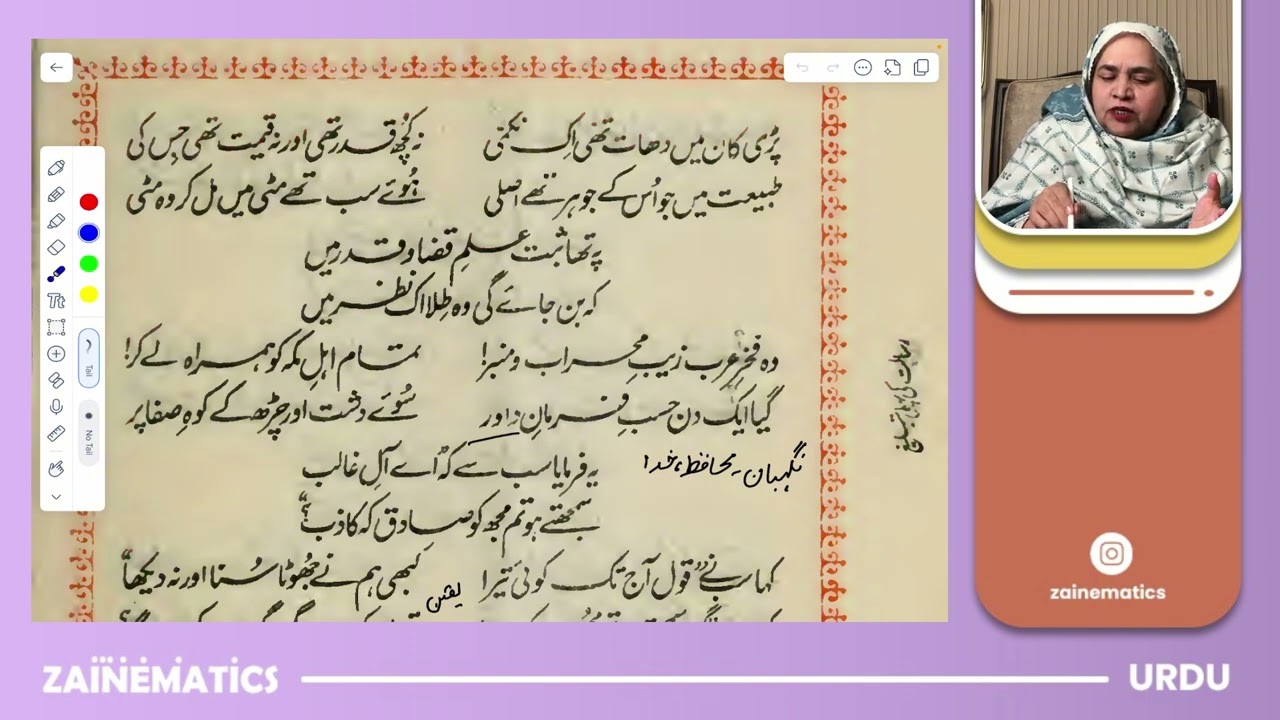 پڑی کان میں دھات تھی اِک نکمّی نہ کچُھ قدر تھی اور نہ قیمت تھی جِس کی
طبیعت میں جو اُس کے جوہر تھے اصلی ہُوئے سب تھے مٹی میں مل کر وہ مٹی
پہ تھا ثبت علمِ قضا و قدر میں
کہ بن جائے گی وہ طِلا اک نظر میں
وہ فخرِ عرب زیبِ محراب و منبر! تمام اہلِ مکہ کو ہمراہ لے کر!
گیا ایک دن حسبِ فرمانِ داور سُوئے دشت اور چڑھ کے کوہِ صفا پر
رسالت کی پہلی تبلیغ
یہ فرمایا سب سے کہ "اے آلِ غالب
نگہبان - محافظ، خدا
سمجھتے ہو تم مجھ کو صادق کہ کاذب؟"
کہا سب نے "قول آج تک کوئی تیرا کبھی ہم نے جھُوٹا سُنا اور نہ دیکھا"
یقین
Tt
Tail
No Tail
zainematics
ZAINEMATICS
URDU